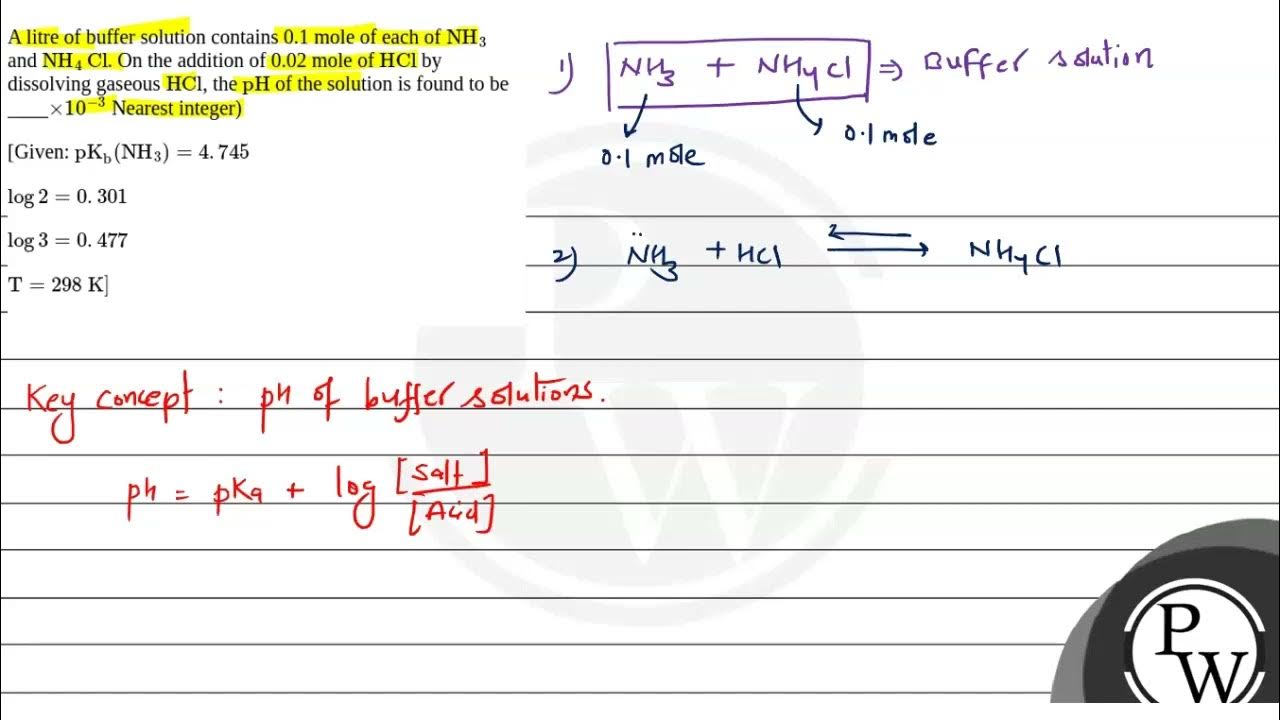 A litre of buffer solution contains 0.1 mole of each of NH₃
and NH₄ Cl. On the addition of 0.02 mole of HCl by
dissolving gaseous HCl, the pH of the solution is found to be
____×10⁻³ Nearest integer)
[Given: pK_b(NH₃) = 4.745
log 2 = 0.301
log 3 = 0.477
T = 298 K]
1) NH₃ + NH₄Cl ⇒ Buffer solution
0.1 mole
0.1 mole
2) N̈H₃ + HCl ⇌ NH₄Cl
Key concept : pH of buffer solutions.
pH = pKa + log [Salt]/[Acid]
P W
P
W